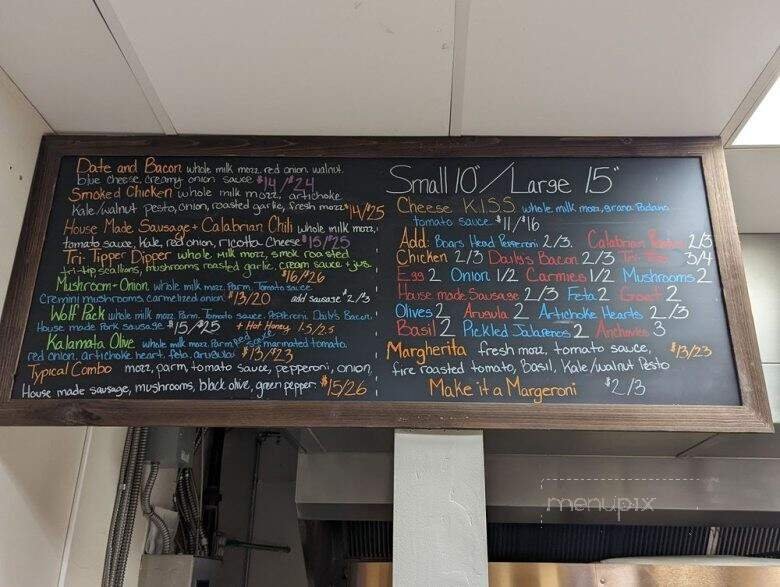 Date and Bacon whole milk mozz, red onion, walnut,
blue cheese, creamy onion sauce $14/$24
Smoked Chicken whole milk mozz, artichoke
Kale/walnut pesto, onion, roasted garlic, fresh mozz $14/$25
House Made Sausage + Calabrian Chili whole milk mozz,
tomato sauce, Kale, red onion, ricotta cheese $15/$25
Tri-Tipper Dipper whole milk mozz, smok roasted
tri-tip, scallions, mushrooms roasted garlic, cream sauce + jus.
$16/$26
Mushroom-Onion whole milk mozz, Parm, Tomato sauce
Cremini mushrooms carmelized onion $13/20 add sausage $2/$3
Wolf Pack whole milk mozz, Parm, Tomato sauce, Pepperoni, Daily's Bacon,
House made Pork sausage $15/$25 + Hot Honey 1.5/2.5
Kalamata Olive whole milk mozz, Parm, red sauce marinated tomato,
red onion, artichoke heart, feta, arugula $13/$23
Typical Combo mozz, parm, tomato sauce, pepperoni, onion,
House made sausage, mushrooms, black olive, green pepper $15/26
Small 10"/Large 15"
Cheese K.I.S.S. whole milk mozz, Grana Padano
tomato sauce $11/$16
Add: Boars Head Pepperoni 2/3. Calabrian 2/3
Chicken 2/3 Daily's Bacon 2/3 Tri-Tip 3/4
Egg 2 Onion 1/2 Carmies 1/2 Mushrooms 2
House made Sausage 2/3 Feta 2 Goat 2
Olives 2 Arugula 2 Artichoke Hearts 2/3
Basil 2 Pickled Jalapenos 2 Anchovies 3
Margherita fresh mozz, tomato sauce, $13/23
fire roasted tomato, Basil, Kale/walnut Pesto
Make it a Margeroni $2/3
menupix